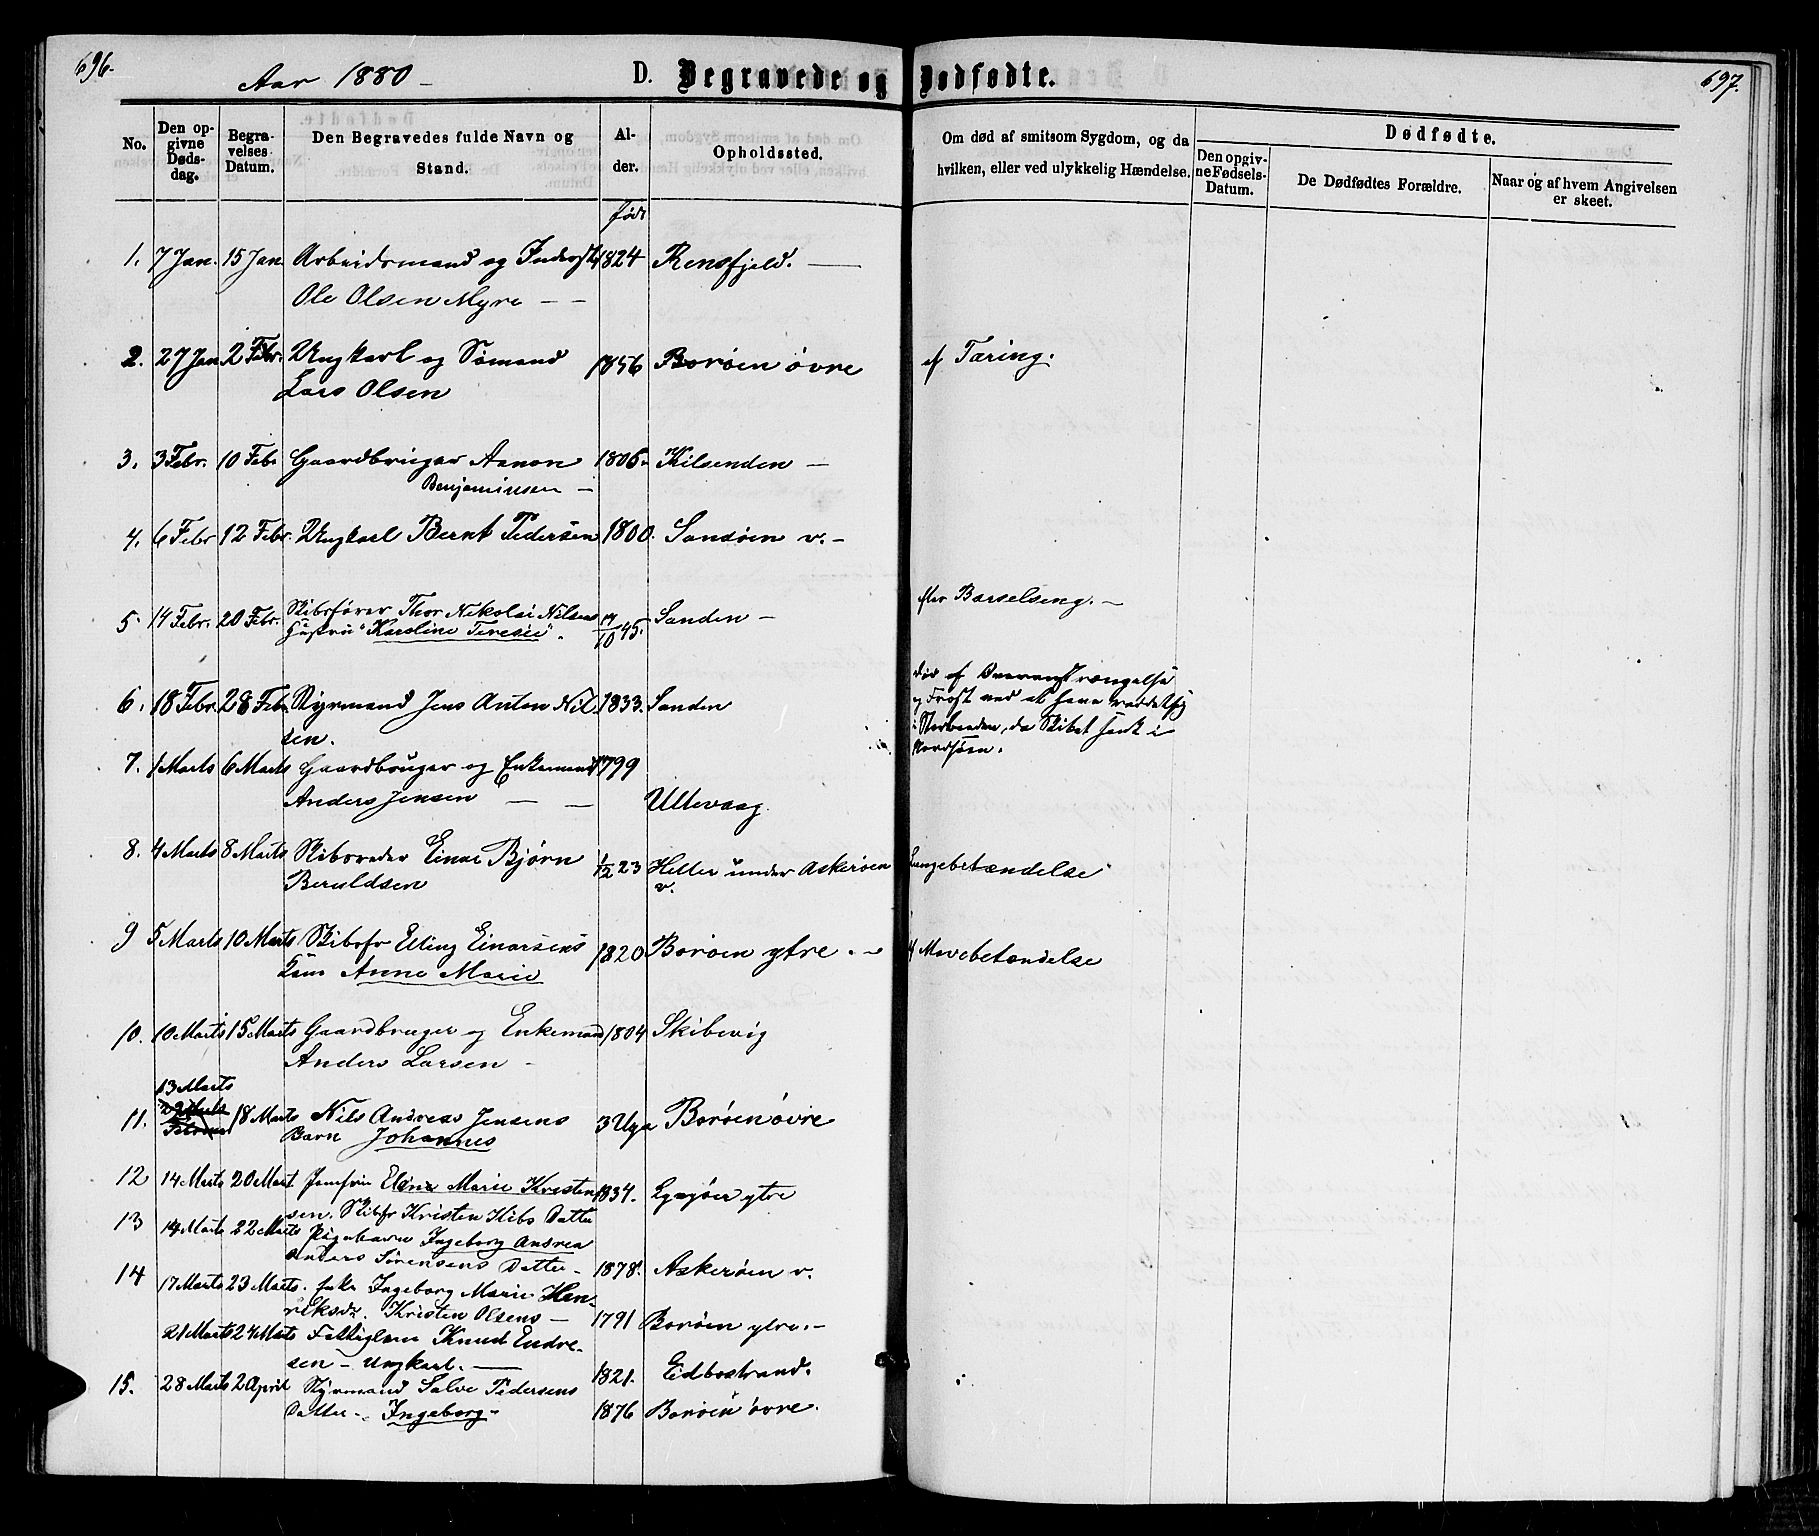 696.
Aar 1880 –
D. Begravede og Dødfødte.
697.
No.
Den opgivne Dødsdag.
Begravelses Datum.
Den Begravedes fulde Navn og Stand.
Alder.
Opholdssted.
Om død af smitsom Sygdom, og da hvilken, eller ved ulykkelig Hændelse.
Dødfødte.
Den opgivne Fødsels-Datum.
De Dødfødtes Forældre.
Naar og af hvem Angivelsen er skeet.
Født
1. 7 Jan. 15 Jan. Arbeidsmand og Inderst 1824 Rensfjeld. —
Ole Olsen Myre – –
2. 27 Jan 2 Febr. Ungkarl og Sømand 1856 Borøen øvre af Tæring.
Lars Olsen
3. 3 Febr. 10 Feb Gaardbruger Aanon 1806. Kilsenden –
Benjaminsen –
4. 6 Febr 12 Febr. Ungkarl Bernt Pedersen 1800. Sandøen v. –
5. 14 Febr. 20 Febr. Skibsfører Thor Nikolai Nilsens 14/10 45. Sanden – efter Barselseng. –
Hustru "Karoline Teresie".
6. 18 Febr. 28 Feb Styrmand Jens Anton Nil- 1833. Sanden
sen.
død af Overanstrængelse
og Frost ved at have reddet sig
i Skibsbaaden, da Skibet sank i
Nordsøen.
7. 1 Marts 6 Marts Gaardbruger og Enkemand 1799
Anders Jensen — — Ullevaag
8. 4 Marts 8 Marts Skibsreder Einar Bjørn 1/12 23 Helle under Askerøen v. Lungebetændelse
Beruldsen
9 5 Marts 10 Marts Skibsfr Elling Einarsens 1820 Borøen ytre. – af Mavebetændelse
Kone Anne Marie
10. 10 Marts 15 Marts Gaardbruger og Enkemand 1804 Skibevig
Anders Larsen –
13 Marts
11. 18 Marts Nils Andreas Jensens 3 Uger Borøen øvre
Barn Johannes
12 14 Marts 20 Mart Jomfru Eline Marie Kristen- 1834. Egsjøen ytre
sen. Skibsfr Kristen Kibs Datter
13 14 Marts 22 Marts Pigebarn Ingeborg Andrea
Anders Sørensens Datter – 1878. Askerøen v.
14 17 Marts 23 Marts. Enke Ingeborg Marie Hen-
riksdr. Kristen Olsens – 1791 Borøen ytre. –
21 Marts 24 Marts Fattiglem Knud Endre-
sen – Ungkarl. — 1821. Eidbostrand.
15. 28 Marts 2 April Styrmand Salve Pedersens
Datter – Ingeborg – 1876 Borøen øvre.